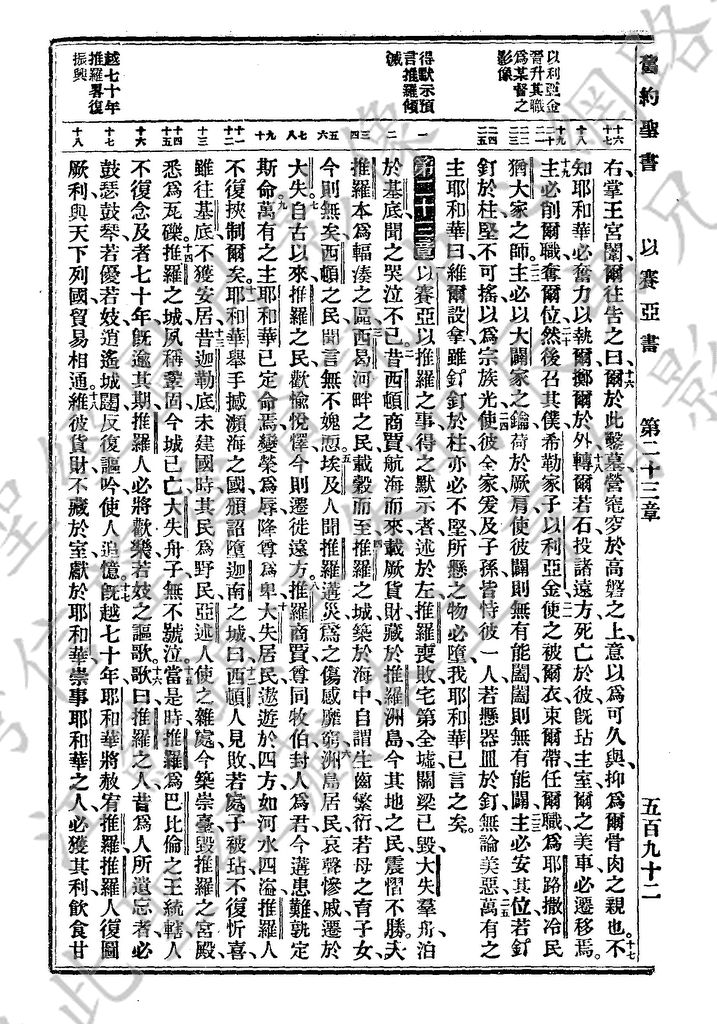 舊約聖書 以賽亞書 第二十三章 五百九十二
以利亞金
晉升其職
為基督之
影像
得默示預
言推羅傾
滅
越七十年
推羅畧復
振興
右掌王宮閽爾往告之曰爾於此鑿墓營窀穸於高磐之上意以為可久與抑爲爾骨肉之親也不
知耶和華必奮力以執爾擲爾於外轉爾若石投諸遠方死亡於彼旣玷主室爾之美車必遷移焉
主必削爾職奪爾位然後召其僕希勒家子以利亞金使之被爾衣束爾帶任爾職爲耶路撒冷民
猶大家之師主必以大闢家之鑰荷於厥肩使彼闢則無有能闔闔則無有能闢主必安其位若釘
釘於柱堅不可搖以爲宗族光使彼全家爰及子孫皆恃彼一人若懸器皿於釘無論美惡萬有之
主耶和華曰維爾設拿雖釘釘於柱亦必不堅所懸之物必墮我耶和華已言之矣
第二十三章 以賽亞以推羅之事得之默示者述於左推羅喪敗宅第全墟關梁已毀大失羣舟泊
於基底聞之哭泣不已昔西頓商賈航海而來載厥貨財藏於推羅洲島今其地之民震慴不勝夫
推羅本爲輻湊之區西曷河畔之民載穀而至推羅之城築於海中自謂生齒繁衍若母之育子女
今則無矣西頓之民聞言無不媿恧埃及人聞推羅遘災爲之傷感靡窮洲島居民哀聲慘戚遷於
大失自古以來推羅之民歡愉悅懌今則遷徙遠方推羅商賈尊同牧伯封人爲君今遘患難孰定
斯命萬有之主耶和華已定命焉變榮爲辱降尊爲卑大失居民遨遊於四方如河水四溢推羅人
不復挾制爾矣耶和華舉手撼瀕海之國頒詔墮迦南之城曰西頓人見敗若處子被玷不復忻喜
雖往基底不獲安居昔迦勒底未建國時其民爲野民亞述人使之雜處今築崇臺毀推羅之宮殿
悉爲瓦礫推羅之城夙稱鞏固今城已亡大失舟子無不號泣當是時推羅爲巴比倫之王統轄人
不復念及者七十年旣逾其期推羅人必將歡樂若妓之謳歌歌曰推羅之人昔爲人所遺忘者必
鼓瑟鼓琴若優若妓逍遙城闉反復謳吟使人追憶旣越七十年耶和華將赦宥推羅推羅人復圖
厥利與天下列國貿易相通維彼貨財不藏於室獻於耶和華崇事耶和華之人必獲其利飲食甘